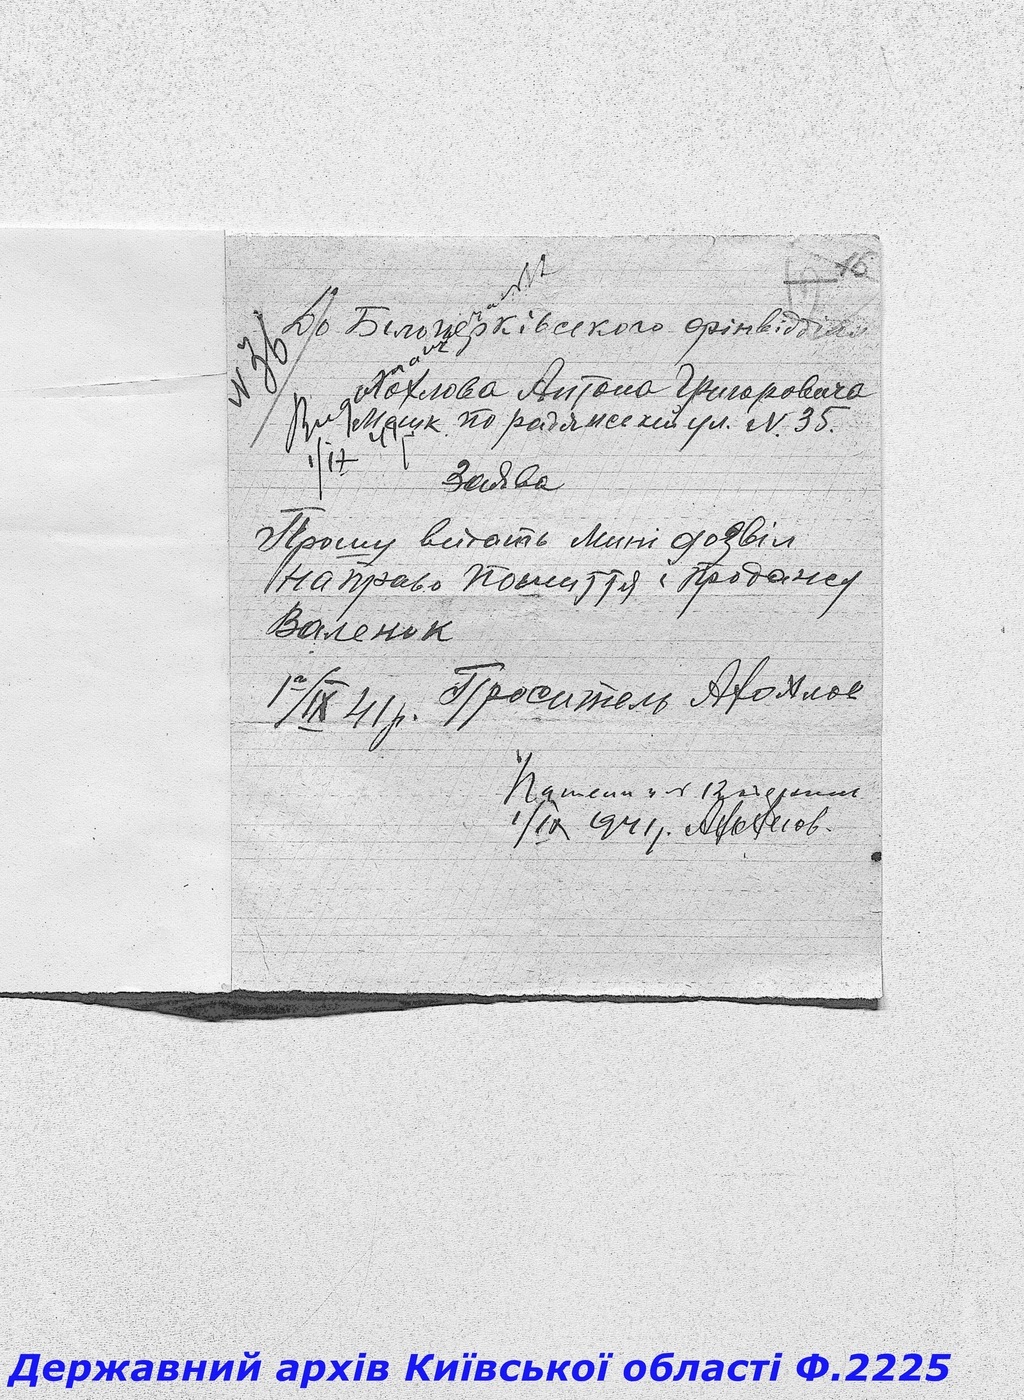 16
N 36
До Білоцерківського фінвідділу
Хохлова Антона Григоровича
Мешк. по радянській ул. N. 35.
1/IX
Заява
Прошу видать мині дозвіл
на право пошиття і продажу
Валенок
1го/IX 41р. Проситель АХохлов
Патент 12
1/IX 1941р. АХохлов.
Державний архів Київської області Ф.2225